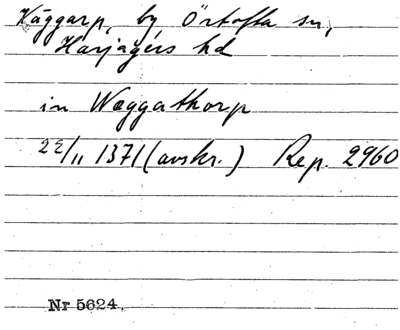 Väggarp, by Örtofta sn,
Harjagers hd
in Wæggathorp
22/11 1371 (avskr.) Rep. 2960
Nr 5624.